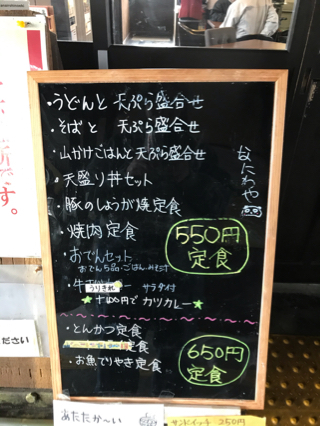 ・うどんと 天ぷら盛合せ
・そばと 天ぷら盛合せ
・山かけごはんと天ぷら盛合せ
・天盛り丼セット
・豚のしょうが焼定食
・焼肉定食
・おでんセット
おでん5品・ごはん・みそ汁
・牛
うりきれ
サラダ付
★ +100円で カツカレー★
なにわや
550円
定食
・とんかつ定食
定食
・お魚てりやき定食
650円
定食
す。
ださい
あたたか〜い
サンドイッチ 250円